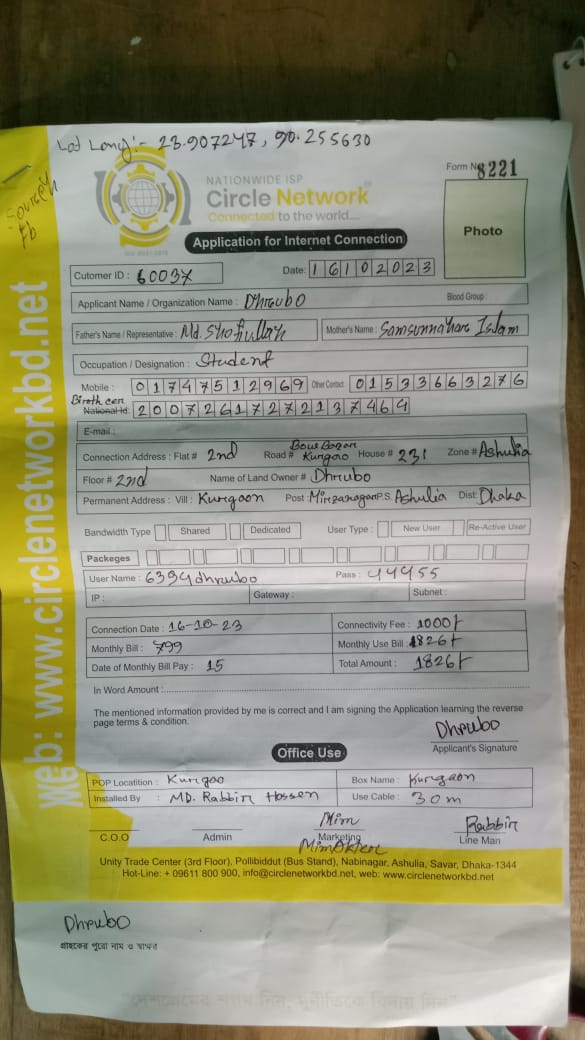 Lat Long:- 23.907247, 90.255630
Form No 8221
NATIONWIDE ISP
Circle Network
Connected to the world....
Photo
Application for Internet Connection
Cutomer ID : 60037
Date: 16102023
Applicant Name / Organization Name : Dhrubo
Blood Group :
Father's Name / Representative : Md. Shofiullah
Mother's Name : Samsunnahar Islam
Occupation / Designation : Student
Mobile : 01747512969 Other Contact 01533663276
Birth cer
National Id 20072617272137464
E-mail :
Connection Address : Flat # 2nd Road # Kurgao House # 231 Zone # Ashulia
Floor # 2nd Name of Land Owner # Dhrubo
Permanent Address : Vill : Kurgaon Post : Mirzanagar P.S. Ashulia Dist: Dhaka
Bandwidth Type Shared Dedicated User Type : New User Re-Active User
Packeges
User Name : 6394dhrubo Pass : 44455
IP : Gateway : Subnet :
Connection Date : 16-10-23 Connectivity Fee : 1000/-
Monthly Bill : 799 Monthly Use Bill 826/-
Date of Monthly Bill Pay : 15 Total Amount : 1826/-
In Word Amount :
The mentioned information provided by me is correct and I am signing the Application learning the reverse
page terms & condition.
Dhrubo
Applicant's Signature
Office Use
POP Locatition : Kurgao Box Name : Kurgaon
Installed By : MD. Rabbir Hossen Use Cable : 30m
Mim Rabbir
C.O.O Admin Marketing Line Man
Mim Akter
Unity Trade Center (3rd Floor), Pollibiddut (Bus Stand), Nabinagar, Ashulia, Savar, Dhaka-1344
Hot-Line: + 09611 800 900, info@circlenetworkbd.net, web: www.circlenetworkbd.net
Web: www.circlenetworkbd.net
Dhrubo
গ্রাহকের পুরো নাম ও স্বাক্ষর